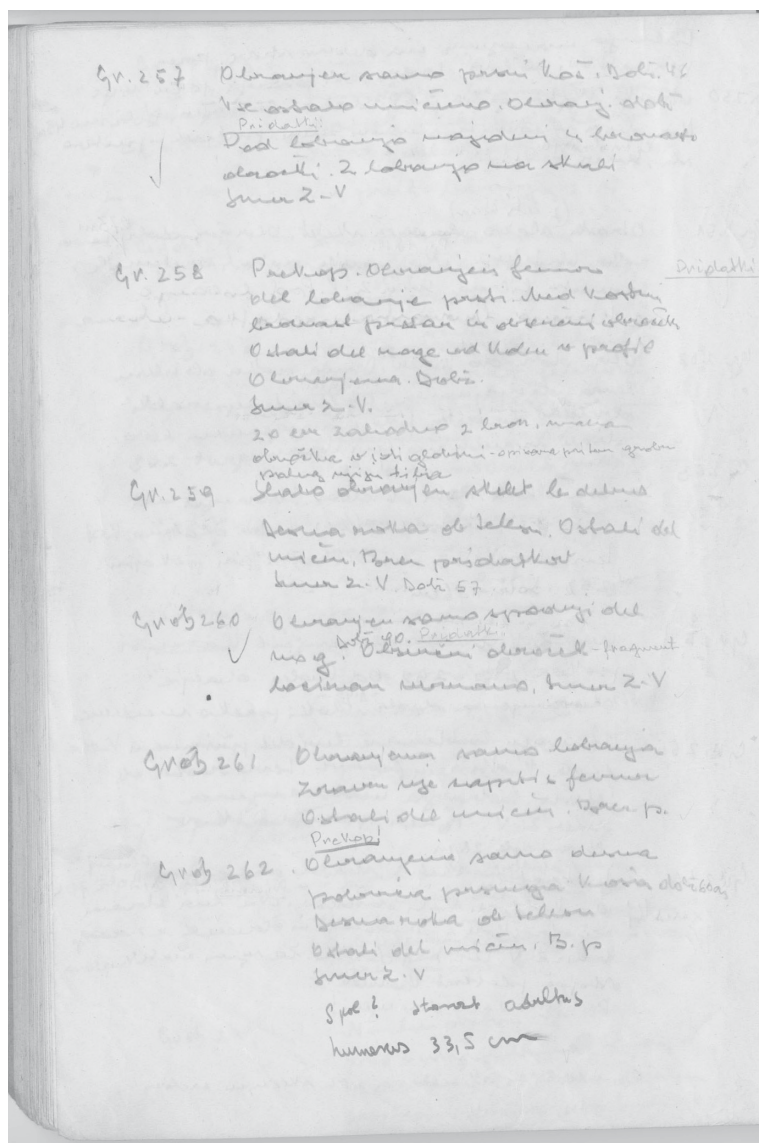 Gr. 257 Ohranjen samo prsni koš. Dolž. 46
Vse ostalo uničeno. Ohranj. dolž
Pridatki:
Pod lobanjo najdeni 4 bronasti
obročki. 2 lobanja na skali
Smer Z-V
Gr. 258 Prekop. Ohranjen femur Pridatki
del lobanje prsti. Med kostmi
bronast prstan in obsenčni obroček
Ostali del noge od kolen v profil
Ohranjena. Dolž.
Smer Z-V.
20 cm zahodno 2 bron,
obročka v isti globini - opisana pri tem grobu
poleg njiju tibia
Gr. 259 Slabo ohranjen skelet le delno
Desna roka ob telesu. Ostali del
uničen. Brez pridatkov
Smer Z-V. Dolž 57
Grob 260 Ohranjen samo spodnji del
Dolž 40. Pridatki:
nog. Obsenčni obroček - fragment
Smer Z-V
Grob 261 Ohranjena samo lobanja
Zraven nje naprti s femur
Ostali del uničen. Brez p.
Prekop!
Grob 262. Ohranjena samo desna
polovica prsnega koša dolž 60
Desna roka ob telesu
Ostali del uničen. B. p
Smer Z-V
Spol? starost adultus
humerus 33,5 cm